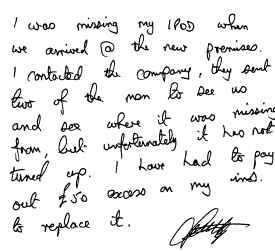 I was missing my IPOD when
we arrived @ the new premises.
I contacted the company, they sent
two of the men to see us
and see where it was missing
from, but unfortunately it has not
turned up. I have had to pay
out £50 excess on my ins.
to replace it.